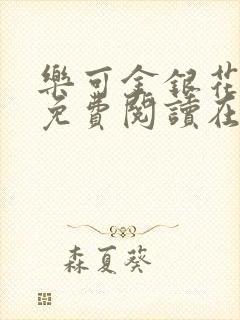 樂可金銀花
免費閱讀在
森夏葵